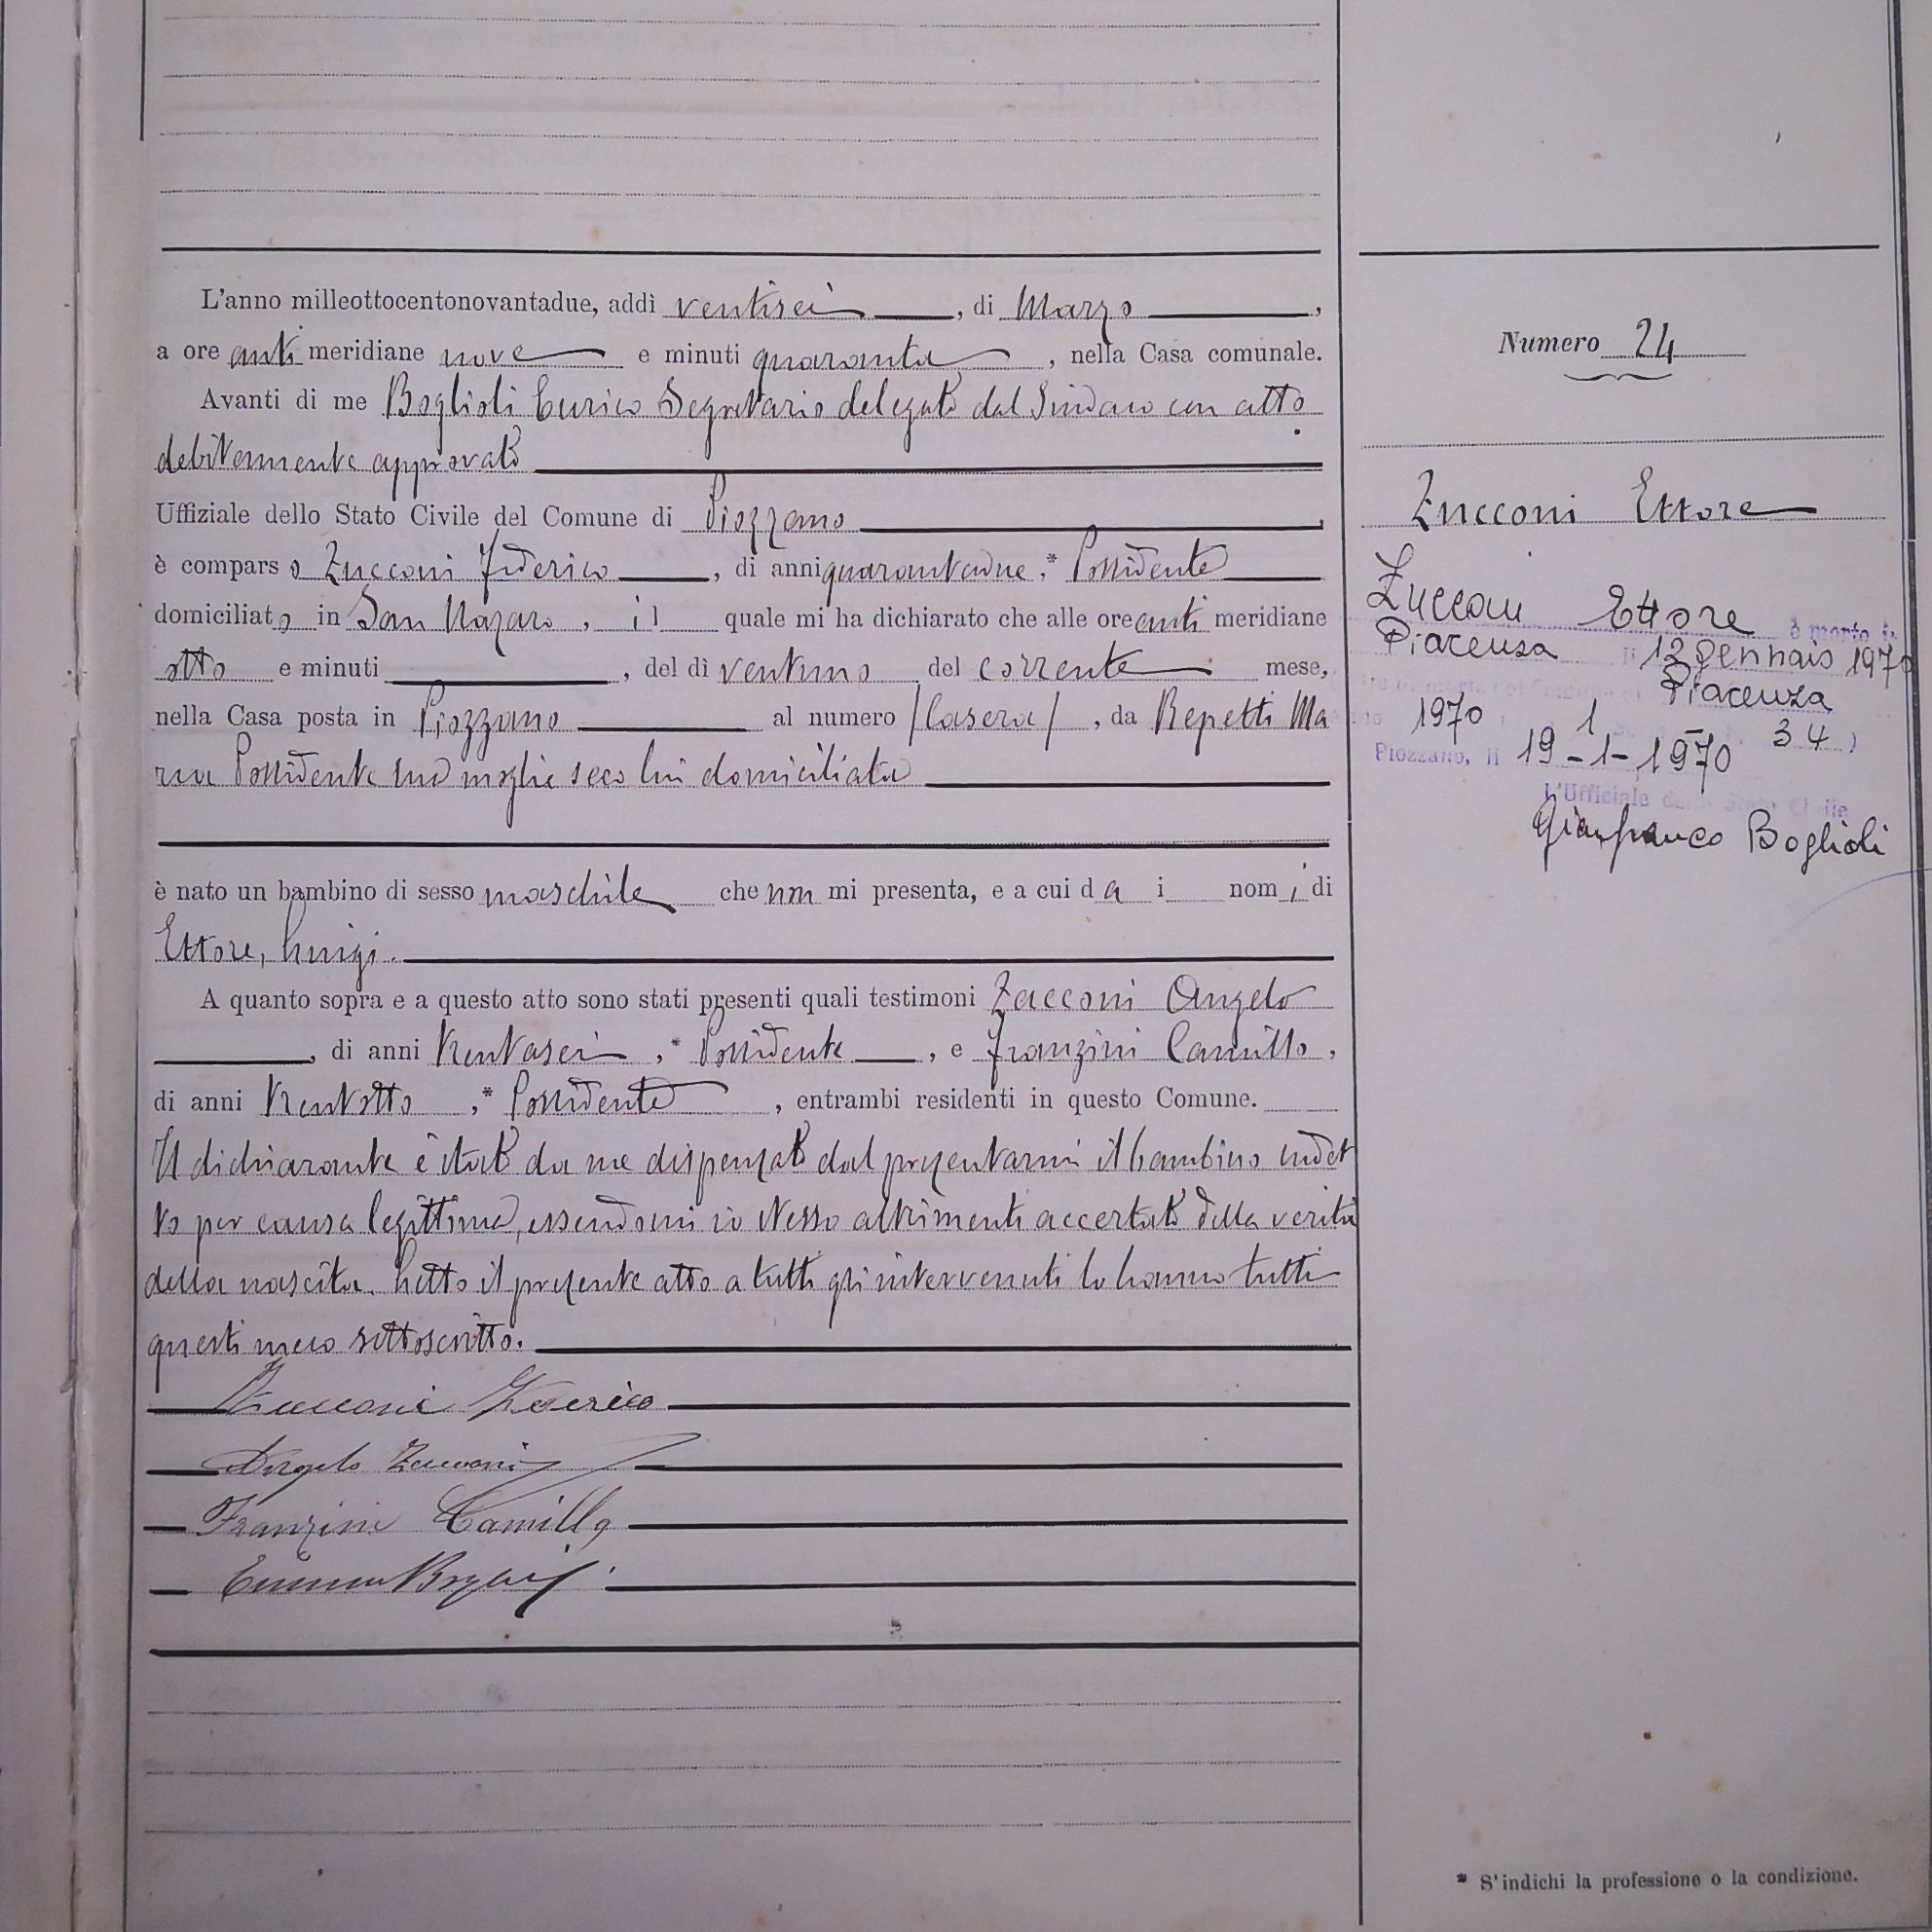 L'anno milleottocentonovantadue, addì ventisei, di Marzo,
a ore anti meridiane nove e minuti quaranta, nella Casa comunale.
Avanti di me Boglioli Enrico Segretario delegato dal Sindaco con atto
debitamente approvato
Uffiziale dello Stato Civile del Comune di Piozzano,
è comparso Zucconi Federico, di anni quarantadue,* Possidente
domiciliato in San Nazaro, il quale mi ha dichiarato che alle ore anti meridiane
otto e minuti , del dì ventuno del corrente mese,
nella Casa posta in Piozzano al numero /Casera/, da Repetti Ma
ria Possidente sua moglie seco lui domiciliata
è nato un bambino di sesso maschile che non mi presenta, e a cui da i nomi di
Ettore, Luigi.
A quanto sopra e a questo atto sono stati presenti quali testimoni Zacconi Angelo
, di anni trentasei,* Possidente, e Franzini Camillo,
di anni trentotto,* Possidente, entrambi residenti in questo Comune.
Il dichiarante è stato da me dispensato dal presentarmi il bambino sudet
to per causa legittima, essendomi io stesso altrimenti accertato della verità
della nascita. Letto il presente atto a tutti gli intervenuti lo hanno tutti
questi meco sottoscritto.
Zucconi Federico
Angelo Zacconi
Franzini Camillo
Enrico Boglioli
Numero 24
Zucconi Ettore
Zucconi Ettore è morto in
Piacenza il 12 gennaio 1970
Piacenza
1970 1
34)
Piozzano, li 19-1-1970
L'Ufficiale dello Stato Civile
Gianfranco Boglioli
* S'indichi la professione o la condizione.